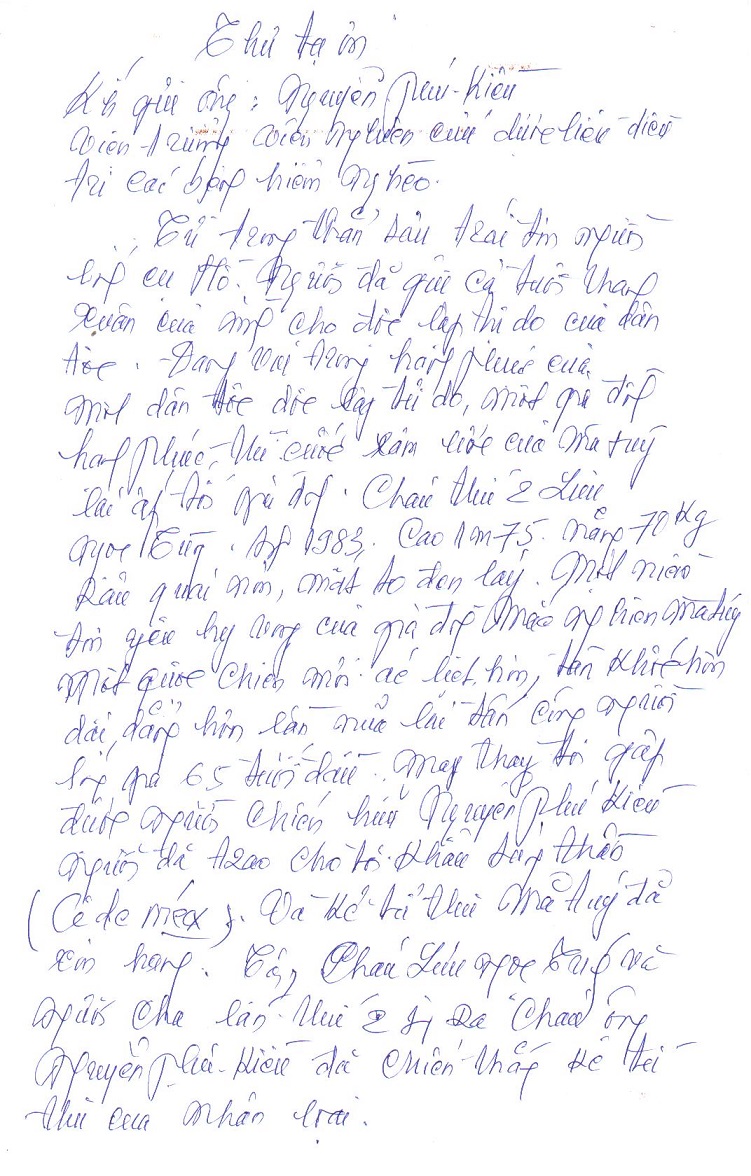 Thư tạ ơn
Kính gửi ông: Nguyễn Phú Kiều
Viện trưởng viện nghiên cứu dược liệu điều
trị các bệnh hiểm nghèo.
Từ trong thẳm sâu trái tim người
lính cụ Hồ. Người đã gửi cả tuổi thanh
xuân của mình cho độc lập tự do của dân
tộc. Đang vui trong hạnh phúc của
một dân tộc độc lập tự do, một gia đình
hạnh phúc, thì cuộc xâm lược của ma túy
lại ập tới gia đình. Cháu thứ 2 Lưu
Ngọc Tùng. sinh 1983, cao 1m75. nặng 70 kg
Râu quai nón, mắt to đen láy. Một niềm
tin yêu hy vọng của gia đình mắc nghiện ma túy
Một cuộc chiến mới ác liệt hơn, tàn khốc hơn
dai dẳng hơn lần nữa lại tấn công người
lính già 65 tuổi đầu. May thay tôi gặp
được người chiến hữu Nguyễn Phú Kiều
Người đã trao cho tôi khẩu súng thần
(Cê de mex). Và kẻ thù ma túy đã
xin hàng. Cháu Lưu Ngọc Tùng và
người cha lần thứ 2 sinh ra cháu ông
Nguyễn Phú Kiều đã chiến thắng kẻ tử
thù của nhân loại.